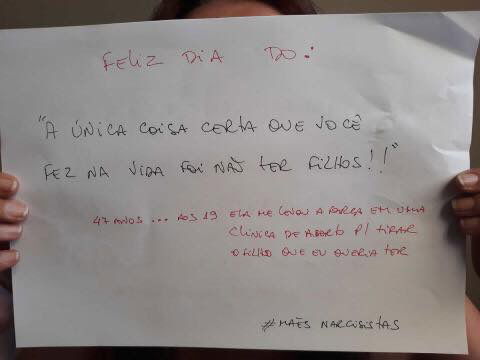 FELIZ DIA DO:
"A ÚNICA COISA CERTA QUE VOCÊ
FEZ NA VIDA FOI NÃO TER FILHOS!!"
47 ANOS... AOS 19 ELA ME LEVOU A FORÇA EM UMA
CLÍNICA DE ABORTO P/ TIRAR
O FILHO QUE EU QUERIA TER
#MÃES NARCISISTAS